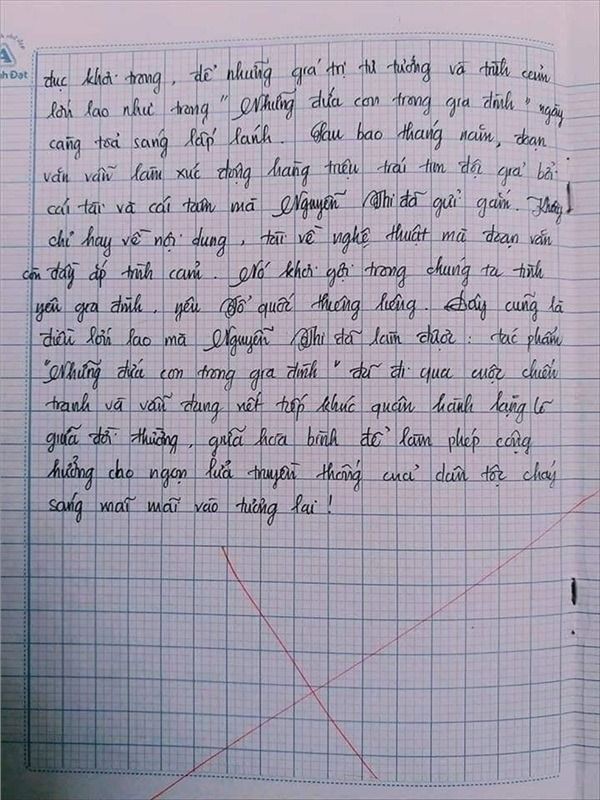 nh Đạt
đục khơi trong, để những giá trị tư tưởng và tình cảm
lớn lao như trong "Những đứa con trong gia đình" ngày
càng toả sáng lấp lánh. Sau bao tháng năm, đoạn
văn vẫn làm xúc động hàng triệu trái tim độc giả bởi
cái tài và cái tâm mà Nguyễn Thi đã gửi gắm. Không
chỉ hay về nội dung, tài về nghệ thuật mà đoạn văn
còn đầy ắp tình cảm. Nó khơi gợi trong chúng ta tình
yêu gia đình, yêu Tổ quốc thương luông. Đây cũng là
điều lớn lao mà Nguyễn Thi đã làm được: tác phẩm
"Những đứa con trong gia đình" đã đi qua cuộc chiến
tranh và vẫn đang viết tiếp khúc quân hành lặng lẽ
giữa đời thường, giữa hoà bình để làm phép cộng
hưởng cho ngọn lửa truyền thống của dân tộc cháy
sáng mãi mãi vào tương lai!